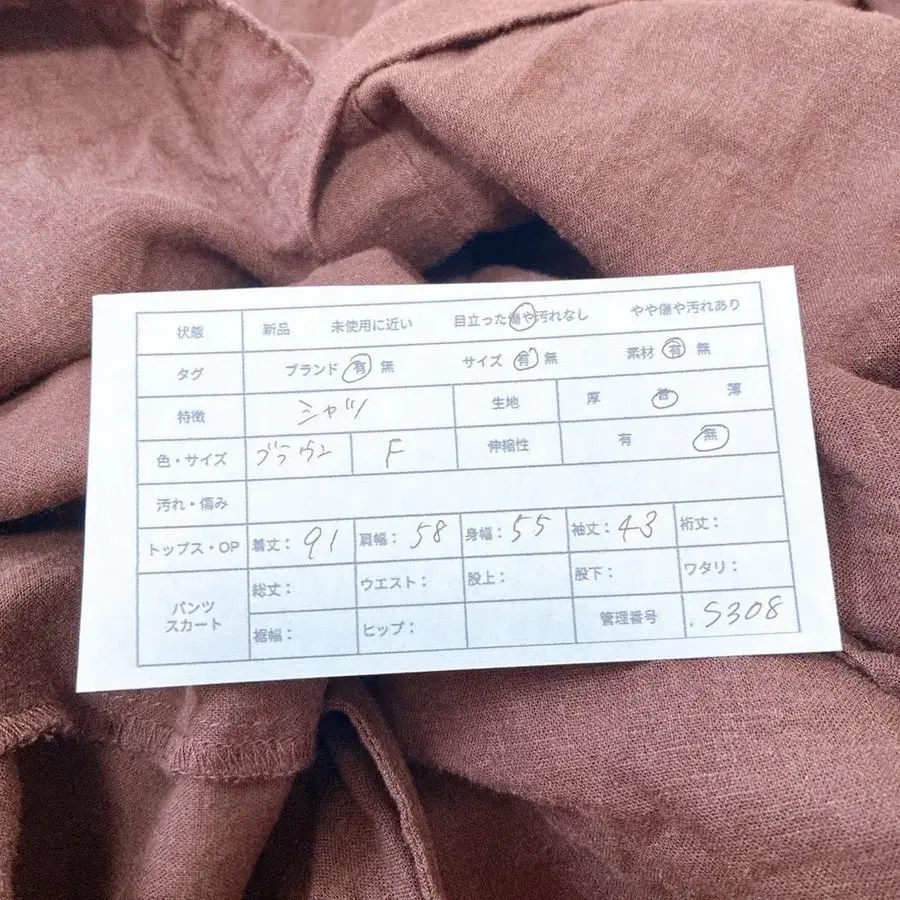 状態 新品 未使用に近い 目立った傷や汚れなし やや傷や汚れあり
タグ ブランド 有 無 サイズ 有 無 素材 有 無
特徴 シャツ 生地 厚 普 薄
色・サイズ ブラウン F 伸縮性 有 無
汚れ・傷み
トップス・OP 着丈: 91 肩幅: 58 身幅: 55 袖丈: 43 裄丈:
パンツ スカート 総丈: ウエスト: 股上: 股下: ワタリ:
裾幅: ヒップ: 管理番号 .S308